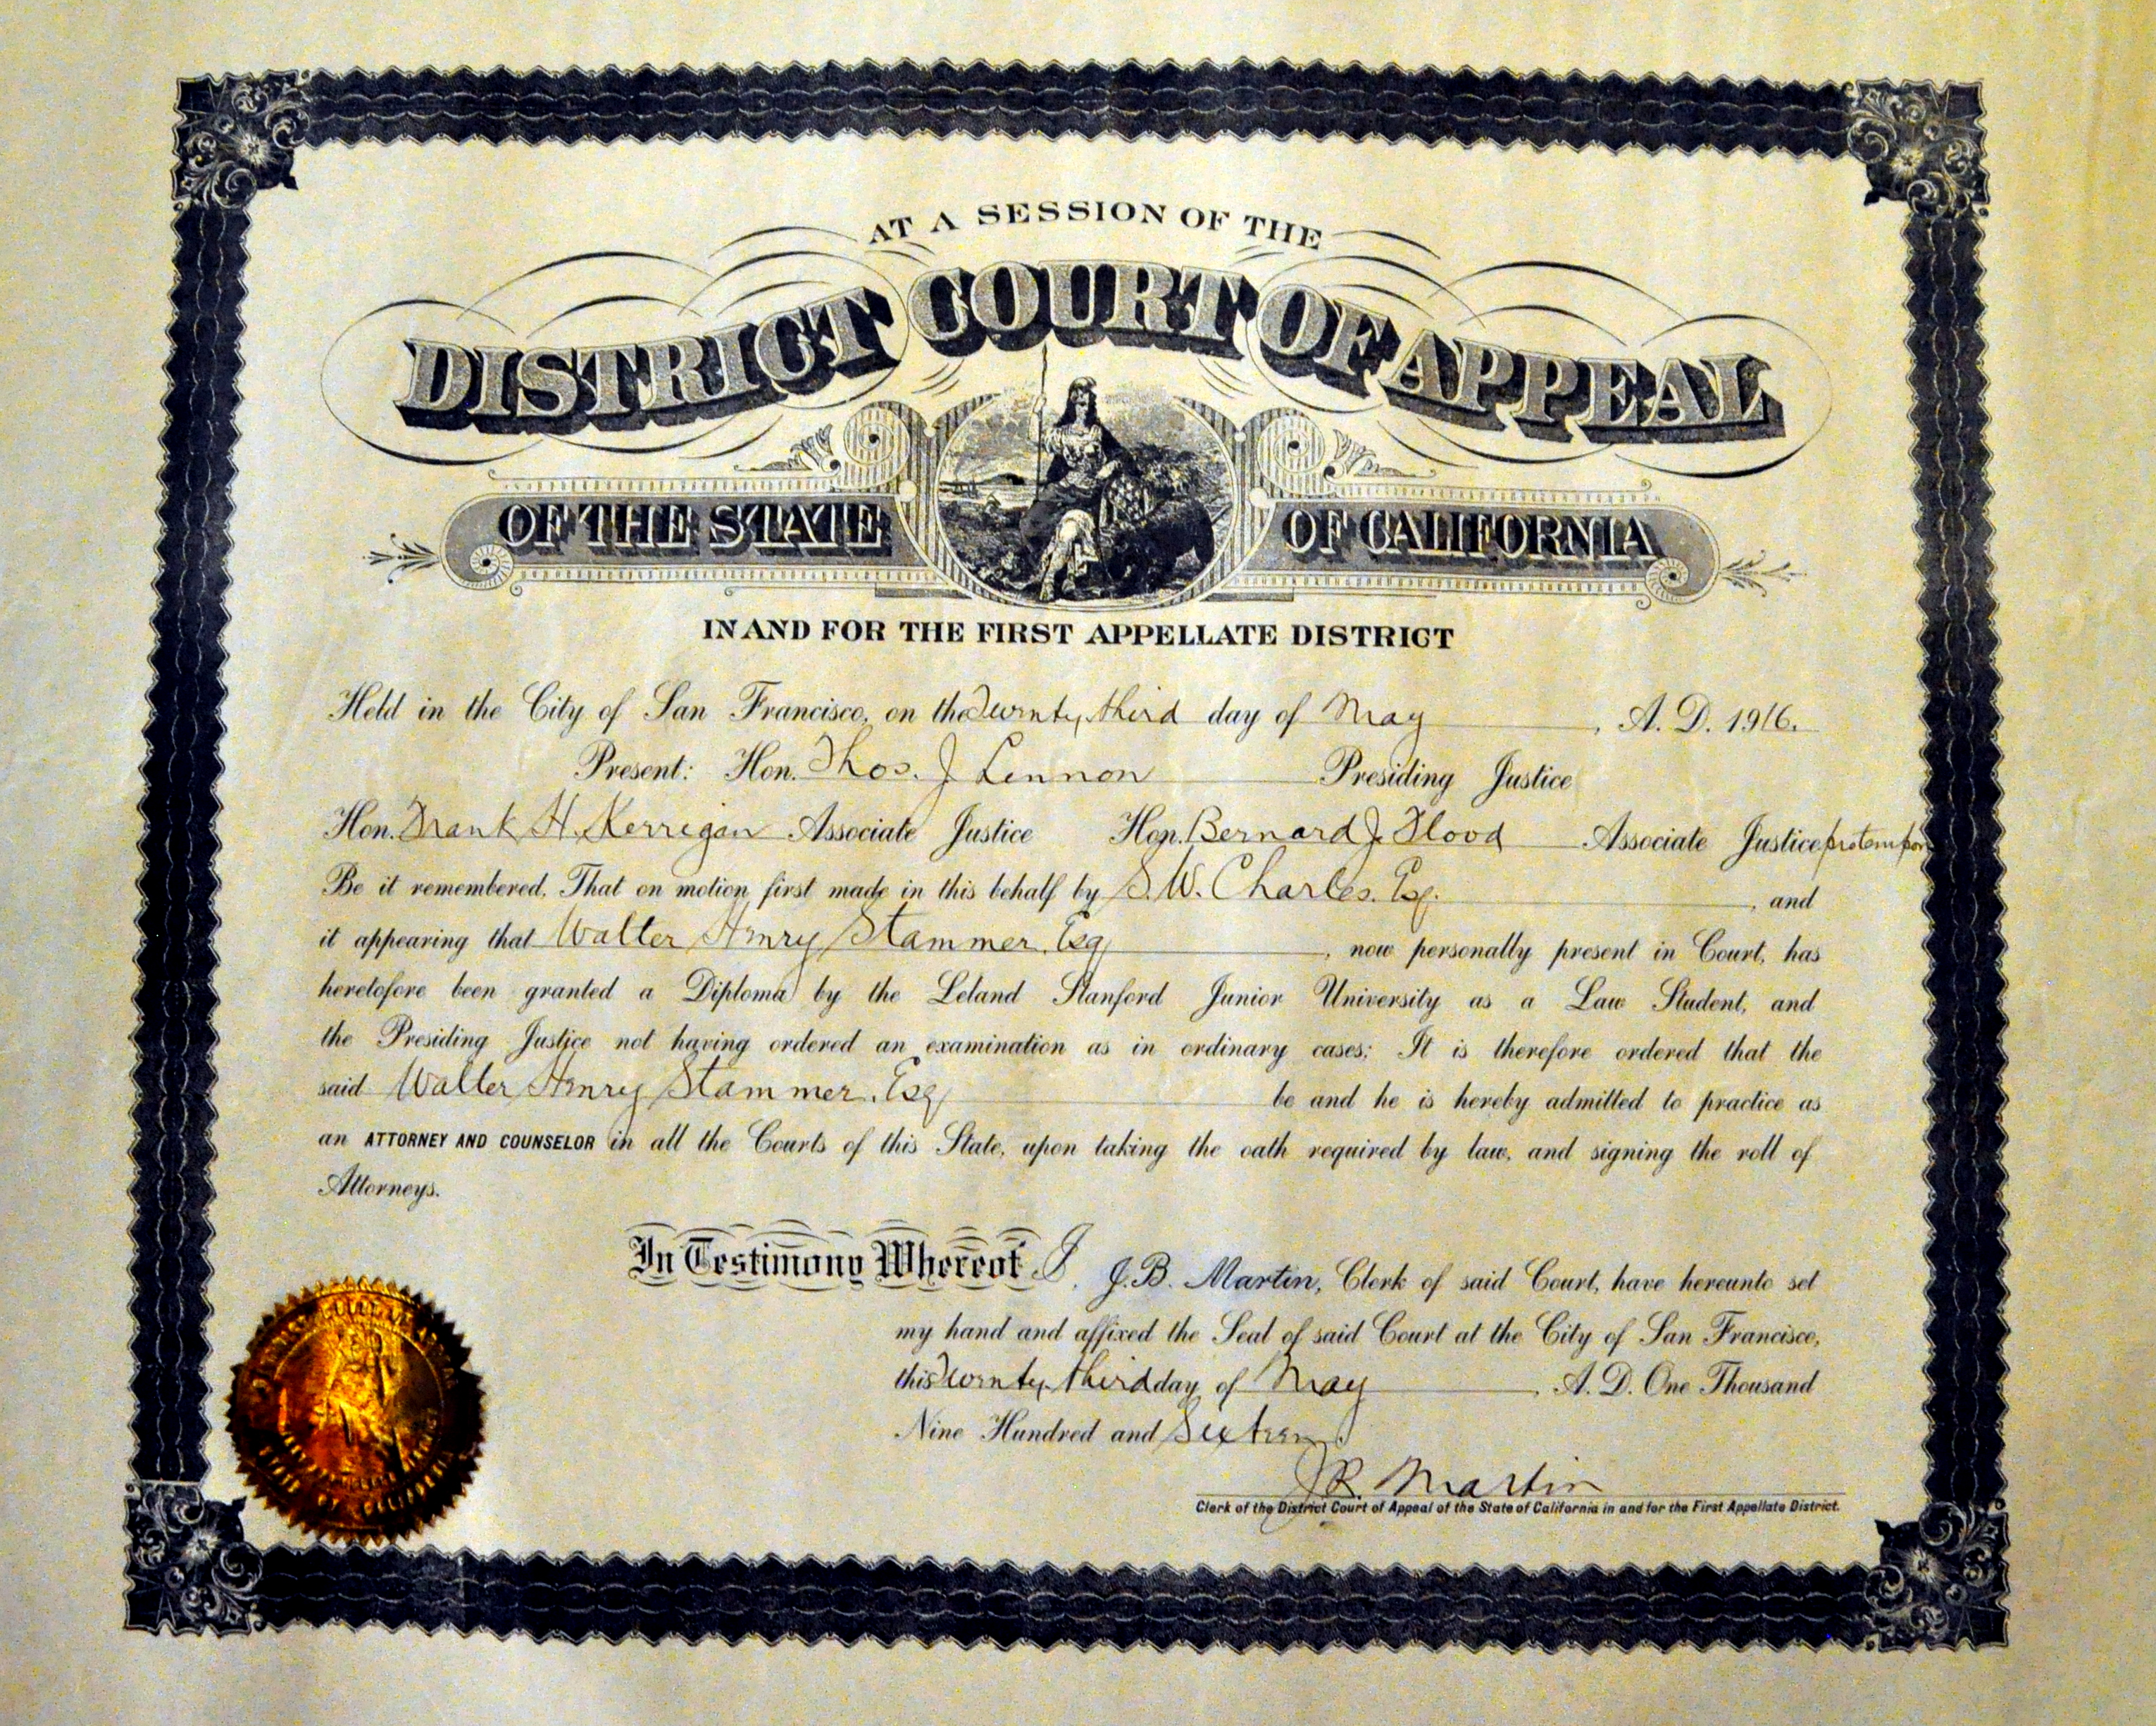 AT A SESSION OF THE
DISTRICT COURT OF APPEAL
OF THE STATE OF CALIFORNIA
IN AND FOR THE FIRST APPELLATE DISTRICT
Held in the City of San Francisco, on the Twenty third day of May, A. D. 1916.
Present: Hon. Thos. J Lennon Presiding Justice
Hon. Frank H. Kerrigan Associate Justice Hon. Bernard J. Flood Associate Justice pro tem por
Be it remembered, That on motion first made in this behalf by S. W. Charles. Esq. , and
it appearing that Walter Henry Stammer. Esq , now personally present in Court, has
heretofore been granted a Diploma by the Leland Stanford Junior University as a Law Student, and
the Presiding Justice not having ordered an examination as in ordinary cases; It is therefore ordered that the
said Walter Henry Stammer. Esq be and he is hereby admitted to practice as
an ATTORNEY AND COUNSELOR in all the Courts of this State, upon taking the oath required by law, and signing the roll of
Attorneys.
In Testimony Whereof I, J. B. Martin, Clerk of said Court, have hereunto set
my hand and affixed the Seal of said Court at the City of San Francisco,
this Twenty third day of May , A. D. One Thousand
Nine Hundred and Sixteen.
J B. Martin
Clerk of the District Court of Appeal of the State of California in and for the First Appellate District.
STATE OF CALIFORNIA